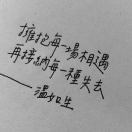 擁抱每一場相遇
再接納每一種失去
——溫如生